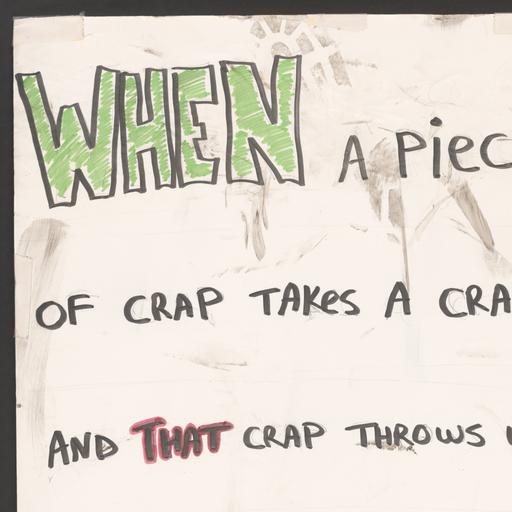 WHEN A PIEC
OF CRAP TAKES A CRA
AND THAT CRAP THROWS